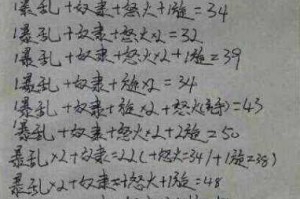 1暴乱+奴隶+怒火+1旋=34
1暴乱+奴隶+怒火×2=32
1暴乱+奴隶+怒火×2+1旋=39
1暴乱+奴隶+旋×2=34
1暴乱+奴隶+旋×2+怒火()=43
1暴乱+奴隶+怒火×2+2旋=50
暴乱×2+奴隶=22(+怒火=34/+1旋=38)
暴乱×2+奴隶+怒火+1旋=48